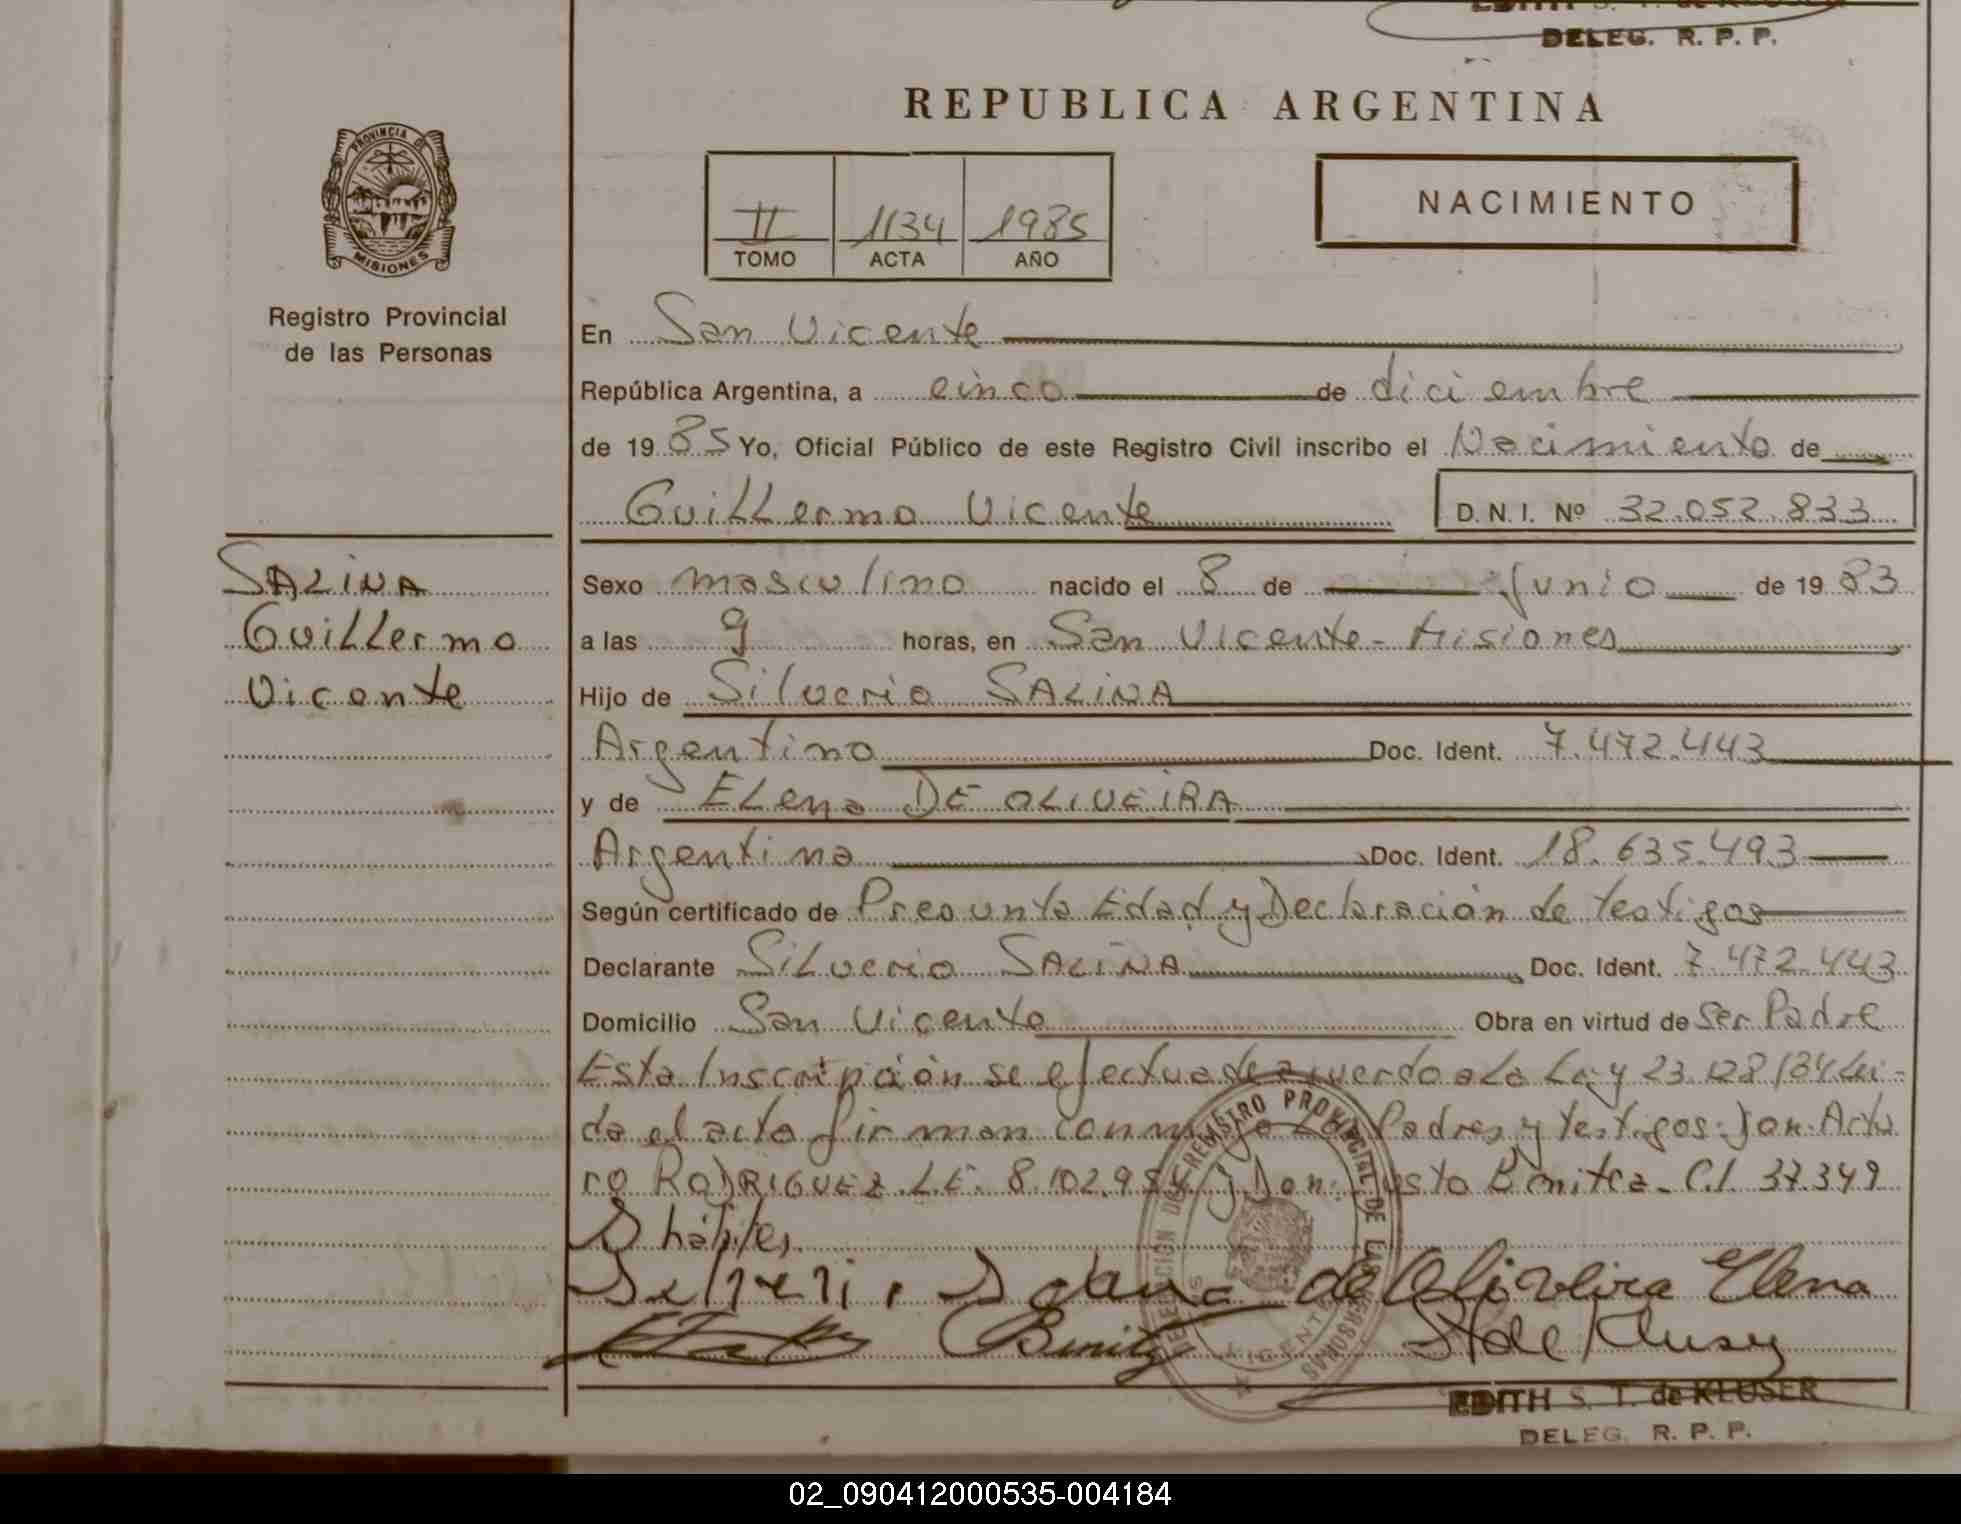 DELEG. R. P. P.
REPUBLICA ARGENTINA
PROVINCIA DE
MISIONES
II 1134 1985
TOMO ACTA AÑO
NACIMIENTO
Registro Provincial
de las Personas
En San Vicente
República Argentina, a cinco de diciembre
de 1985 Yo, Oficial Público de este Registro Civil inscribo el Nacimiento de
Guillermo Vicente D. N. I. Nº 32.052.833
SALINA
Guillermo
Vicente
Sexo masculino nacido el 8 de Junio de 1983
a las 9 horas, en San Vicente - Misiones
Hijo de Silverio SALINA
Argentino Doc. Ident. 7.472.443
y de ELena DE OLIVEIRA
Argentina Doc. Ident. 18.635.493
Según certificado de Presunta Edad y Declaración de testigos
Declarante SiLverio SALINA Doc. Ident. 7.472.443
Domicilio San Vicente Obra en virtud de Ser Padre
Esta Inscripción se efectua de acuerdo a La Ley 23.128/84 Lei-
da el acta firman conmigo Los Padres y testigos: Don: Artu
ro RODRIGUEZ L.E. 8.102.95 y Don: Justo Benitez - C.I. 37.349
hábiles.
de Oliveira Elena
Benitez
EDITH S. T. de KLUSER
DELEG. R. P. P.
02_090412000535-004184